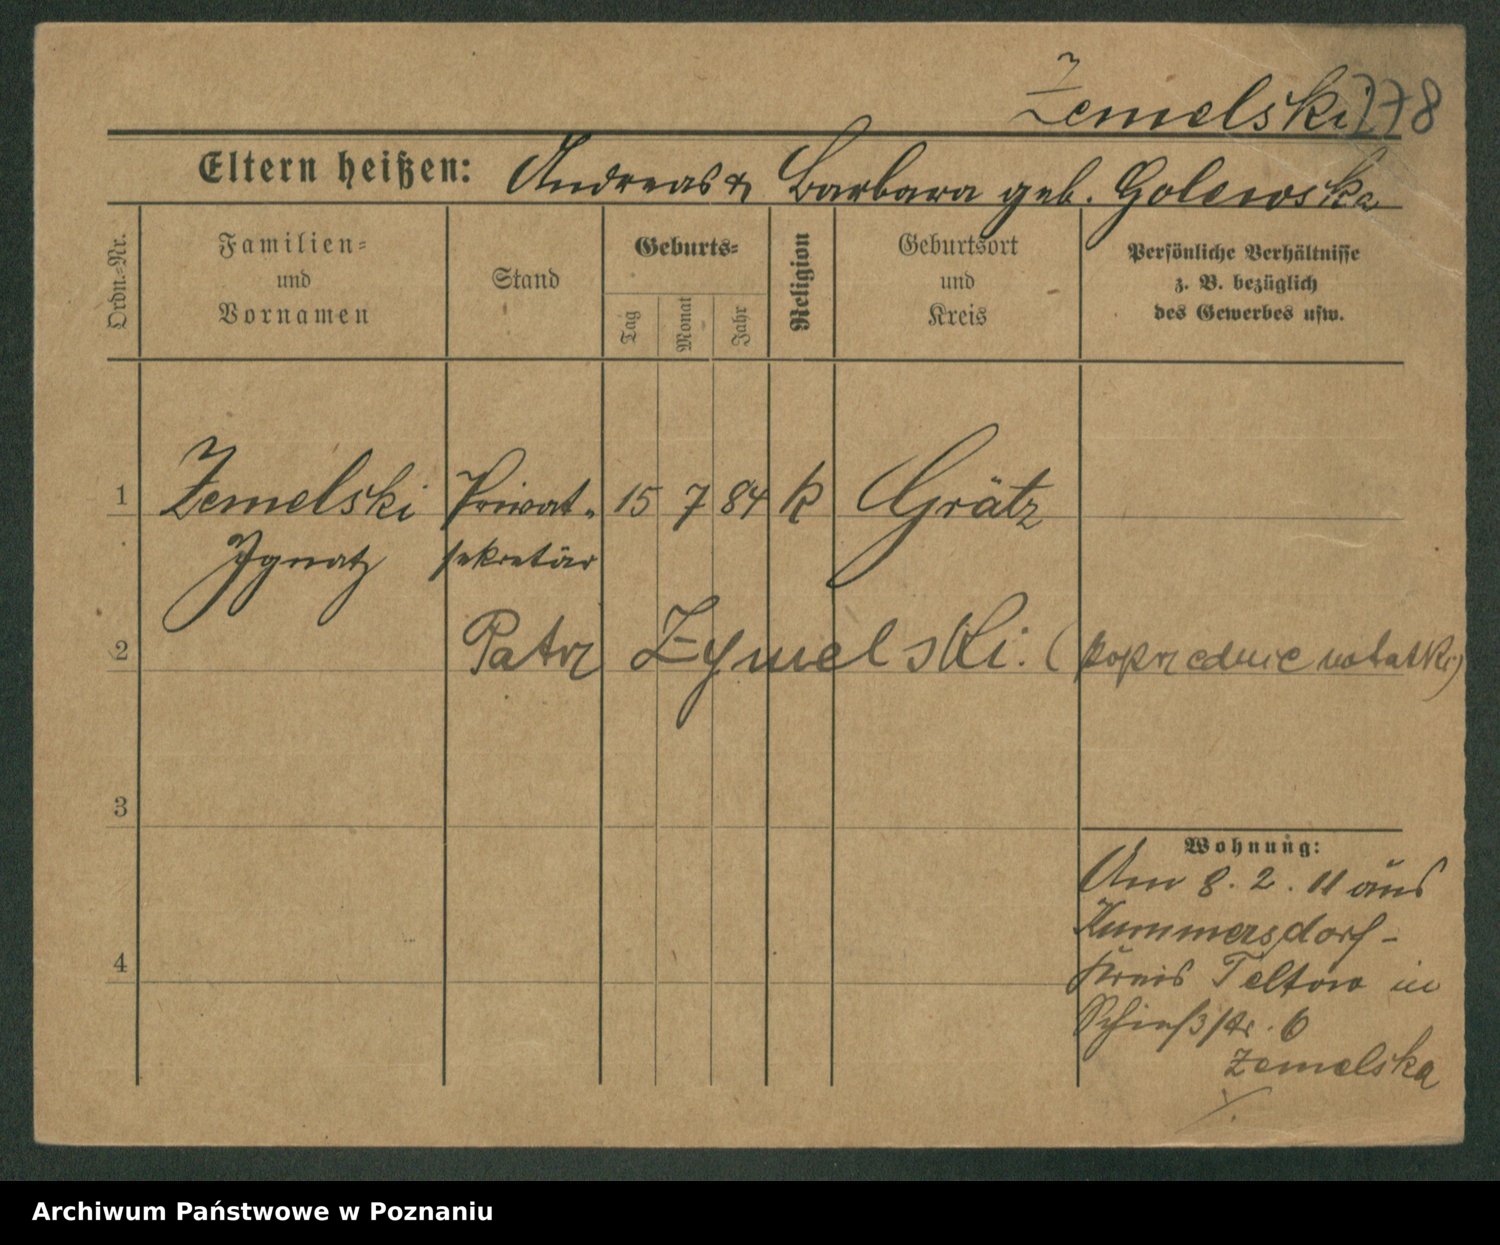 Zemelski 778
Eltern heißen: Andreas & Barbara geb. Golewska
Ordn.=Nr.
Familien=
und
Vornamen
Stand
Geburts=
Tag
Monat
Jahr
Religion
Geburtsort
und
Kreis
Persönliche Verhältnisse
z. B. bezüglich
des Gewerbes usw.
1 Zemelski Privat- 15 7 84 k Grätz
Ignatz sekretär
2 Patrz Zymelski. (poprzednie notatki)
3
Wohnung:
Am 8. 2. 11 aus
Kummersdorf-
4
Kreis Teltow in
Schießstr. 6
Zemelska
Archiwum Państwowe w Poznaniu